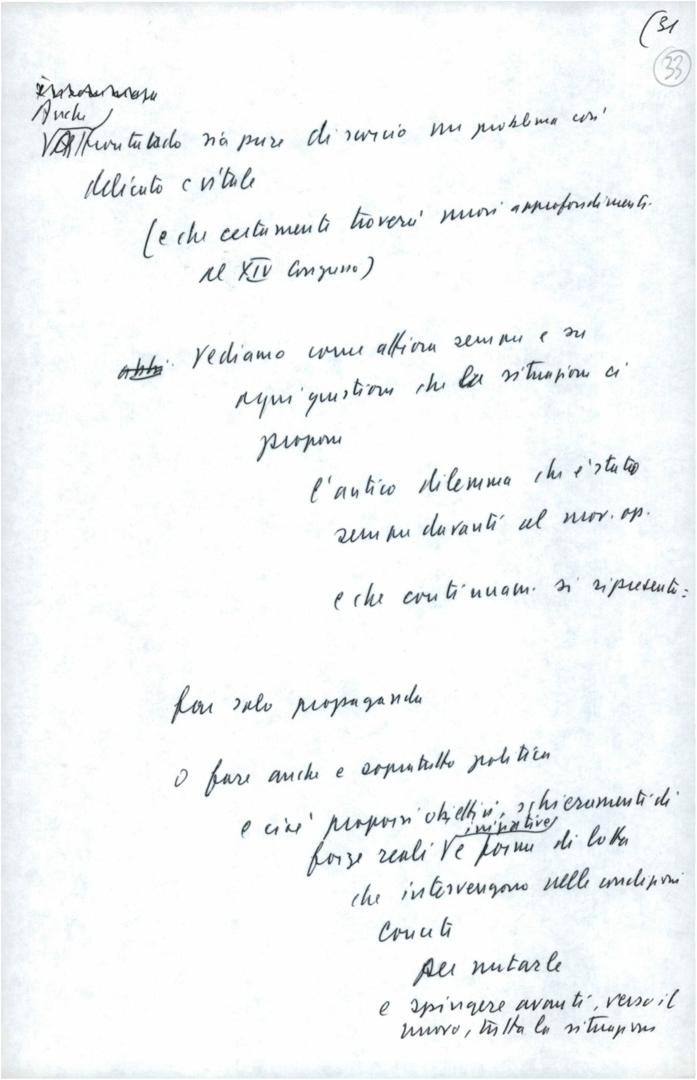 (31
33
Anche
affrontando sia pure di scorcio un problema così
delicato e vitale
(e che certamente troverà nuovi approfondimenti
al XIV Congresso)
Vediamo come affiora sempre e su
ogni questione che la situazione ci
propone
l'antico dilemma che è stato
sempre davanti al mov. op.
e che continuam. si ripresenta:
fare solo propaganda
o fare anche e sopratutto politica
e cioè proporsi obiettivi, schieramenti di
iniziative
forze reali e forme di lotta
che intervengono nelle condizioni
concrete
per mutarle
e spingere avanti, verso il
nuovo, tutta la situazione